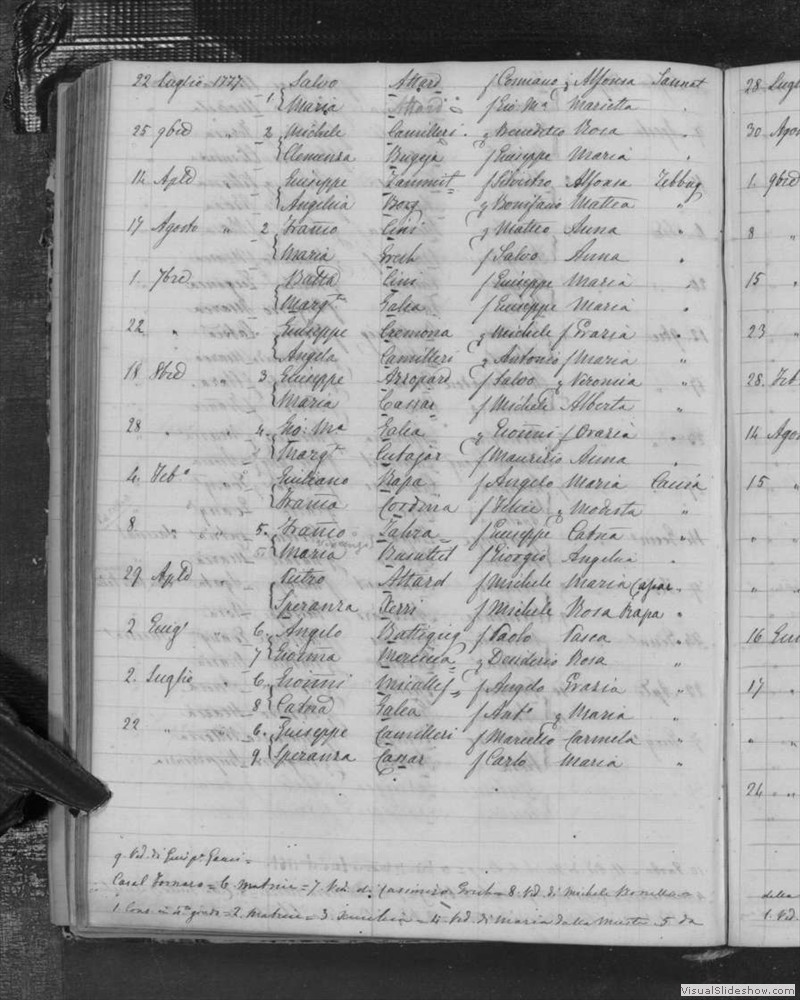 22 Luglio 1777 Salvo Attard f Cosmano q Alfonsa Sannat
1 Maria Attard f Gio Mª Marietta "
25 9bre " 2 Michele Camilleri q Benedetto Rosa "
Clemenza Bugeja f Giuseppe Maria "
14 Aple Giuseppe Zammit f Silvestro Alfonsa Zebbug
Angelica Borg q Bonifano Mattea "
17 Agosto " 2 Franco Cini q Matteo Anna "
Maria Grech f Salvo Anna "
1 7bre Batta Cini f Giuseppe Maria "
Margta Galea f Giuseppe Maria "
22 " Giuseppe Cremona q Michele f Grazia "
Angela Camilleri q Antonio f Maria "
18 8bre 3. Giuseppe Azzopard f Salvo q Veronica "
Maria Cassar f Michele Alberta "
28 " 4. Gio: Mª Galea q Gioanni f Grazia "
Margta Cutajar f Maurizio Anna "
4 Feb° Giuliano Rapa f Angelo Maria Caccia
Franca Cordina f Felice q Modesta "
8 " 5. Franco Zahra f Giuseppe Catna "
5 Maria Busuttil f Giorgio Angelica "
29 Aple Pietro Attard f Michele Maria Cassar "
Speranza Xerri f Michele Rosa Rapa "
2 Giug° 6. Angelo Battiguig f Paolo Pasca "
7 Gioanna Mercieca q Desiderio Rosa "
2. Luglio " 6. Gioanni Micallef f Angelo Grazia "
8 Catna Galea f Ant° q Maria "
22 " 6. Giuseppe Camilleri f Marcello Carmela "
9 Speranza Cassar f Carlo Maria "
9. Vd. di Giuspe Gauci =
Casal Fornaro = 6. Matrice = 7. Vd. di Casimiro Grech = 8. Vd. di Michele
1. Cons. in 4to grado = 2. Matrice = 3. = 4. Vd. di Maria dalla 5 da
28 Lugl
30 Agos
1. 9bre
8 "
15 "
23 "
28. Feb
14 Agos
15 "
" "
" "
16 Giu
17 "
" "
24 "
della
1. Vd.
VisualSlideshow.com